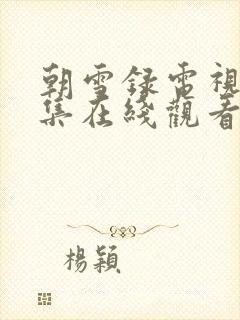 朝雪録電視
集在綫觀看
楊穎